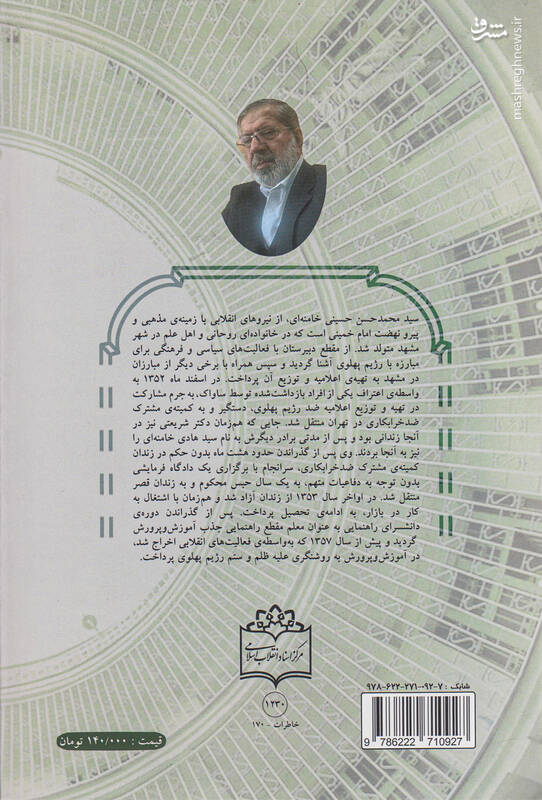 مشرق
mashreghnews.ir
سید محمدحسن حسینی خامنه‌ای، از نیروهای انقلابی با زمینه‌ی مذهبی و
پیرو نهضت امام خمینی است که در خانواده‌ای روحانی و اهل علم در شهر
مشهد متولد شد. از مقطع دبیرستان با فعالیت‌های سیاسی و فرهنگی برای
مبارزه با رژیم پهلوی آشنا گردید و سپس همراه با برخی دیگر از مبارزان
در مشهد به تهیه‌ی اعلامیه و توزیع آن پرداخت. در اسفند ماه ۱۳۵۲ به
واسطه‌ی اعتراف یکی از افراد بازداشت‌شده توسط ساواک، به جرم مشارکت
در تهیه و توزیع اعلامیه ضد رژیم پهلوی، دستگیر و به کمیته‌ی مشترک
ضدخرابکاری در تهران منتقل شد. جایی که هم‌زمان دکتر شریعتی نیز در
آنجا زندانی بود و پس از مدتی برادر دیگرش به نام سید هادی خامنه‌ای را
نیز به آنجا بردند. وی پس از گذراندن حدود هشت ماه بدون حکم در زندان
کمیته‌ی مشترک ضدخرابکاری، سرانجام با برگزاری یک دادگاه فرمایشی
بدون توجه به دفاعیات متهم، به یک سال حبس محکوم و به زندان قصر
منتقل شد. در اواخر سال ۱۳۵۳ از زندان آزاد شد و هم‌زمان با اشتغال به
کار در بازار، به ادامه‌ی تحصیل پرداخت. پس از گذراندن دوره‌ی
دانشسرای راهنمایی به عنوان معلم مقطع راهنمایی جذب آموزش‌وپرورش
گردید و پیش از سال ۱۳۵۷ که به‌واسطه‌ی فعالیت‌های انقلابی اخراج شد،
در آموزش‌وپرورش به روشنگری علیه ظلم و ستم رژیم پهلوی پرداخت.
مرکز اسناد انقلاب اسلامی
۱۲۳۰
خاطرات - ۱۷۰
قیمت : ۱۴۰/۰۰۰ تومان
شابک : ۷-۰۹۲-۲۷۱-۶۲۲-۹۷۸
9 786222 710927